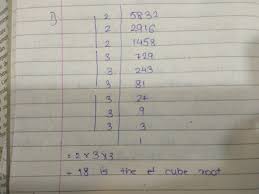 1)
2 | 5832
2 | 2916
2 | 1458
3 | 729
3 | 243
3 | 81
3 | 27
3 | 9
3 | 3
1
= 2 x 3 x 3
- 18 is the cube root